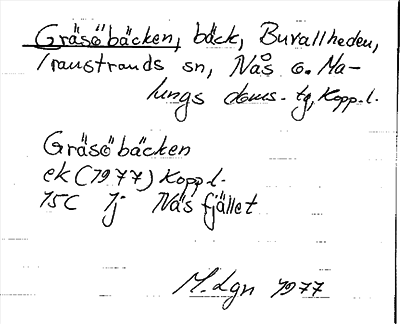 Gräsöbäcken, bäck, Buvallheden,
Transtrands sn, Nås o. Ma-
lungs doms. tg, Kopp.l.
Gräsöbäcken
ek (1977) Koppl.
15C 1j Näsfjället
M. Lgn 1977